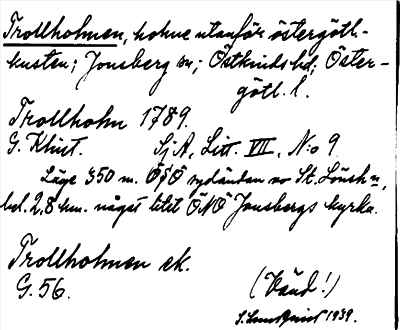 Trollholmen, holme utanför östergötl.-
kusten; Jonsberg sn; Östkinds hd; Öster-
götl. l.
Trollholm 1789.
G. Klint. Sj A, Litt. VII, N:o 9.
Läge 350 m. ÖSÖ sydändan av St. Lönshn,
bel. 2,8 km. något litet ÖNÖ Jonsbergs kyrka.
Trollholmen ek.
G. 56.
(Vänd!)
1939.